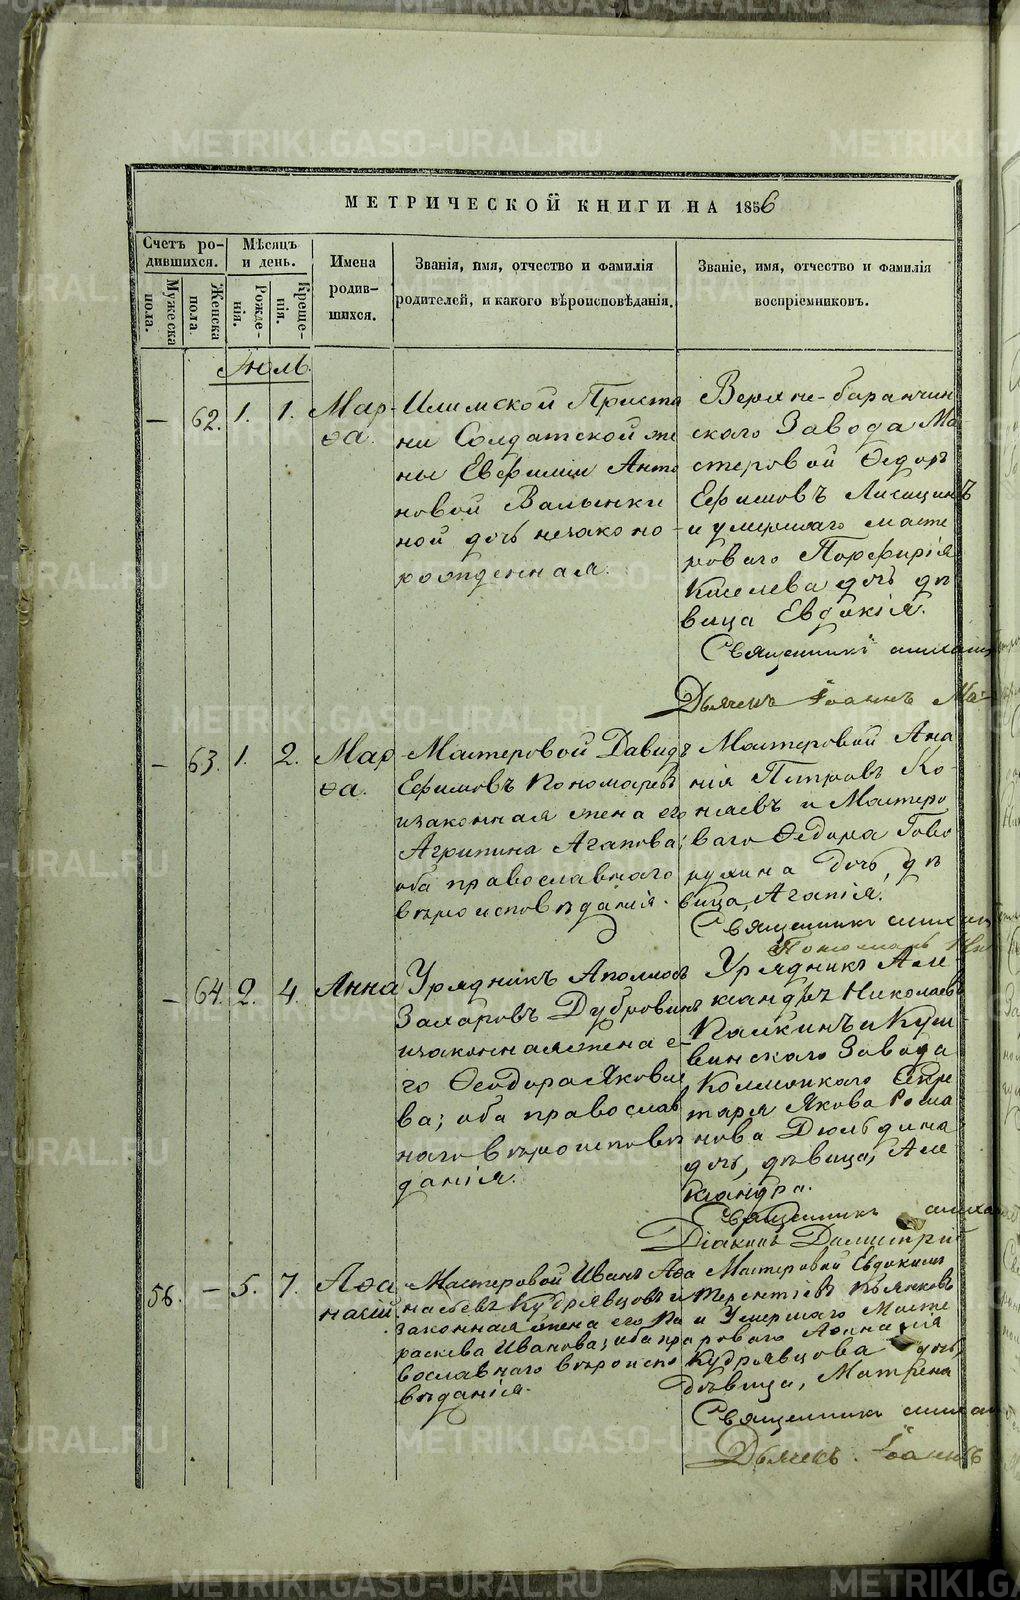 МЕТРИЧЕСКОЙ КНИГИ НА 1856
Счетъ ро-
дившихся.
Мужеска
пола.
Женска
пола.
Мѣсяцъ
и день.
Рожде-
нія.
Креще-
нія.
Имена
родив-
шихся.
Званія, имя, отчество и фамилія
родителей, и какого вѣроисповѣданія.
Званіе, имя, отчество и фамилія
воспріемниковъ.
Іюль
— 62. 1. 1.
Мар-
ѳа.
Илимской Приста
ни Солдатской же
ны Евфиміи Анто
новой Валынки
ной дочь незаконо-
рожденная.
Верхне-баранчин
скаго Завода Ма
стеровой Ѳедоръ
Ефимовъ Лисицинъ
и умершаго масте
роваго Порфирія
Киселева дочь дѣ
вица Евдокія.
Священникъ
Дьячекъ Іоаннъ
— 63. 1. 2.
Мар
ѳа.
Мастеровой Давидъ
Ефимовъ Пономаревъ
и законная жена его
Агрипина Агапова;
оба православнаго
вѣроисповѣданія.
Мастеровой Ана
нія Петровъ Ко-
няевъ и Мастеро
ваго Ѳедора Гово
рухина дочь, дѣ
вица, Агапія.
Священникъ
Пономарь
— 64. 2. 4.
Анна
Урядникъ Аполлосъ
Захаровъ Дубровинъ
и законная жена е-
го Ѳеодора Яковле
ва; оба православ
наго вѣроисповѣ
данія.
Урядникъ Але-
ксандръ Николаевъ
Палкинъ и Куш-
винскаго Завода
Секре
таря Якова Рома
нова
дочь, дѣвица, Але
ксандра.
Священникъ
Діаконъ Димитрій
56. — 5. 7.
Аѳа
насій
Мастеровой Иванъ Аѳа
насьевъ Кудрявцовъ и
законная жена его Па
раскева Иванова; оба пра
вославнаго вѣроиспо
вѣданія.
Мастеровой Евдокимъ
Терентіевъ
и Умершаго Масте
роваго Аѳанасія
Кудрявцова дочь,
дѣвица, Матрена
Священникъ
Дьячекъ Іоаннъ
METRIKI.GASO-URAL.RU